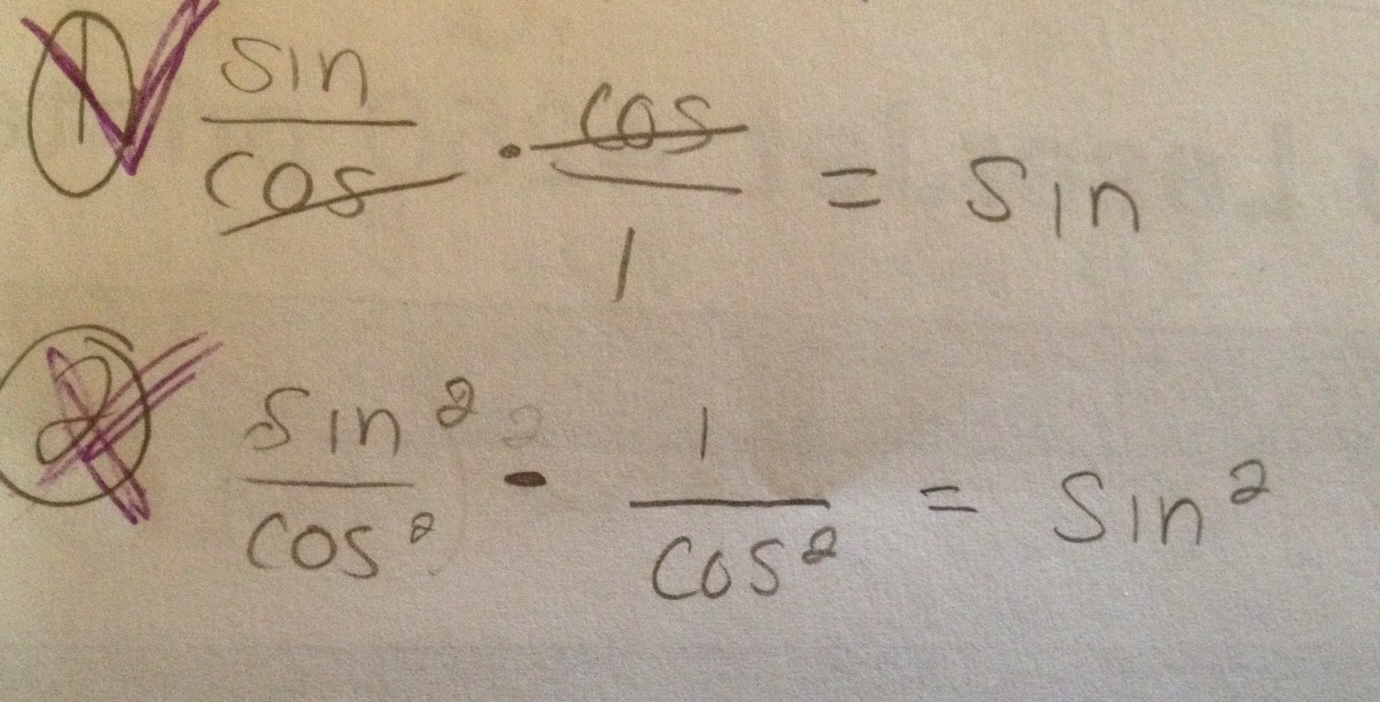 ① sin/cos · cos/1 = sin
② sin²/cos² - 1/cos² = sin²